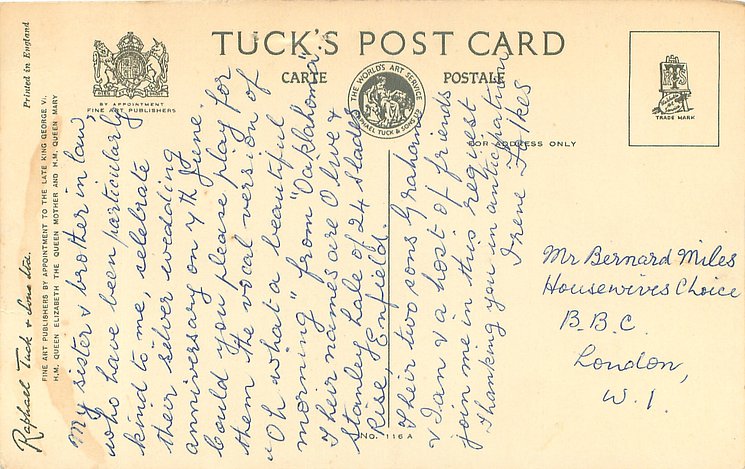 TUCK'S POST CARD
CARTE POSTALE
BY APPOINTMENT
FINE ART PUBLISHERS
THE WORLD'S ART SERVICE
RAPHAEL TUCK & SONS LTD
FOR ADDRESS ONLY
TRADE MARK
Printed in England
Raphael Tuck & Sons Ltd.
FINE ART PUBLISHERS BY APPOINTMENT TO THE LATE KING GEORGE V.
H.M. QUEEN ELIZABETH THE QUEEN MOTHER AND H.M. QUEEN MARY
My sister & brother in law,
who have been particularly
kind to me, celebrate
their silver wedding
anniversary on 7th June.
Could you please play for
them the vocal version of
"Oh what a beautiful
morning" from "Oaklahoma"
Their names are Olive &
Stanley Hale of 24 Slades
Rise, Enfield.
Their two sons Graham
& Ian & a host of friends
join me in this request
Thanking you in anticipation
Irene
Mr Bernard Miles
Housewives Choice
B.B.C.
London,
W.1.
NO. 116 A